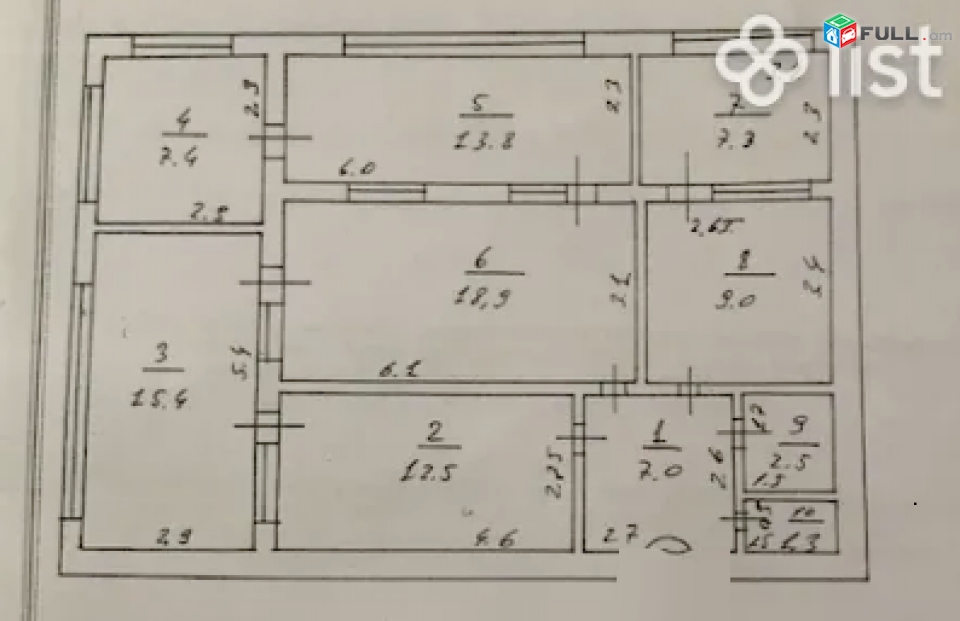 FULL.am
list
4
7.4
2.9
2.8
5
13.8
2.3
6.0
7
7.3
2.3
6
18,9
3.1
6.1
2,65
8
9.0
3.4
3
15.4
5.4
2.9
2
12.5
2.75
4.6
1
7.0
2.6
2.7
9
2.5
1.7
1.5
10
1.3
1.5